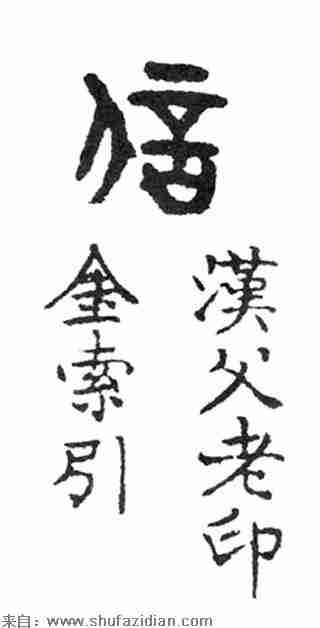 信
漢父老印
金索引
来自：www.shufazidian.com